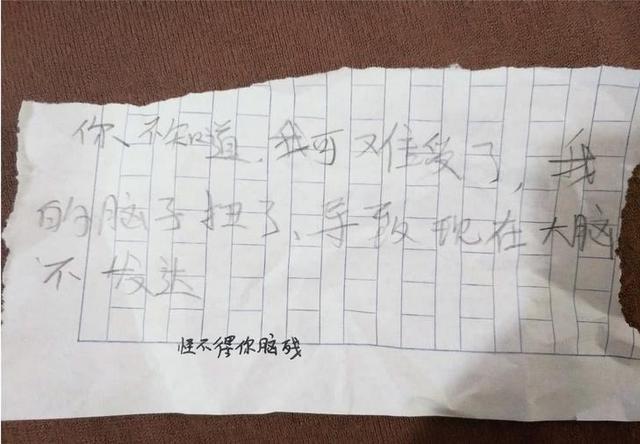 你、不知道,我可难受了,我
的脑子扭了、导致现在大脑
不发达
怪不得你脑残